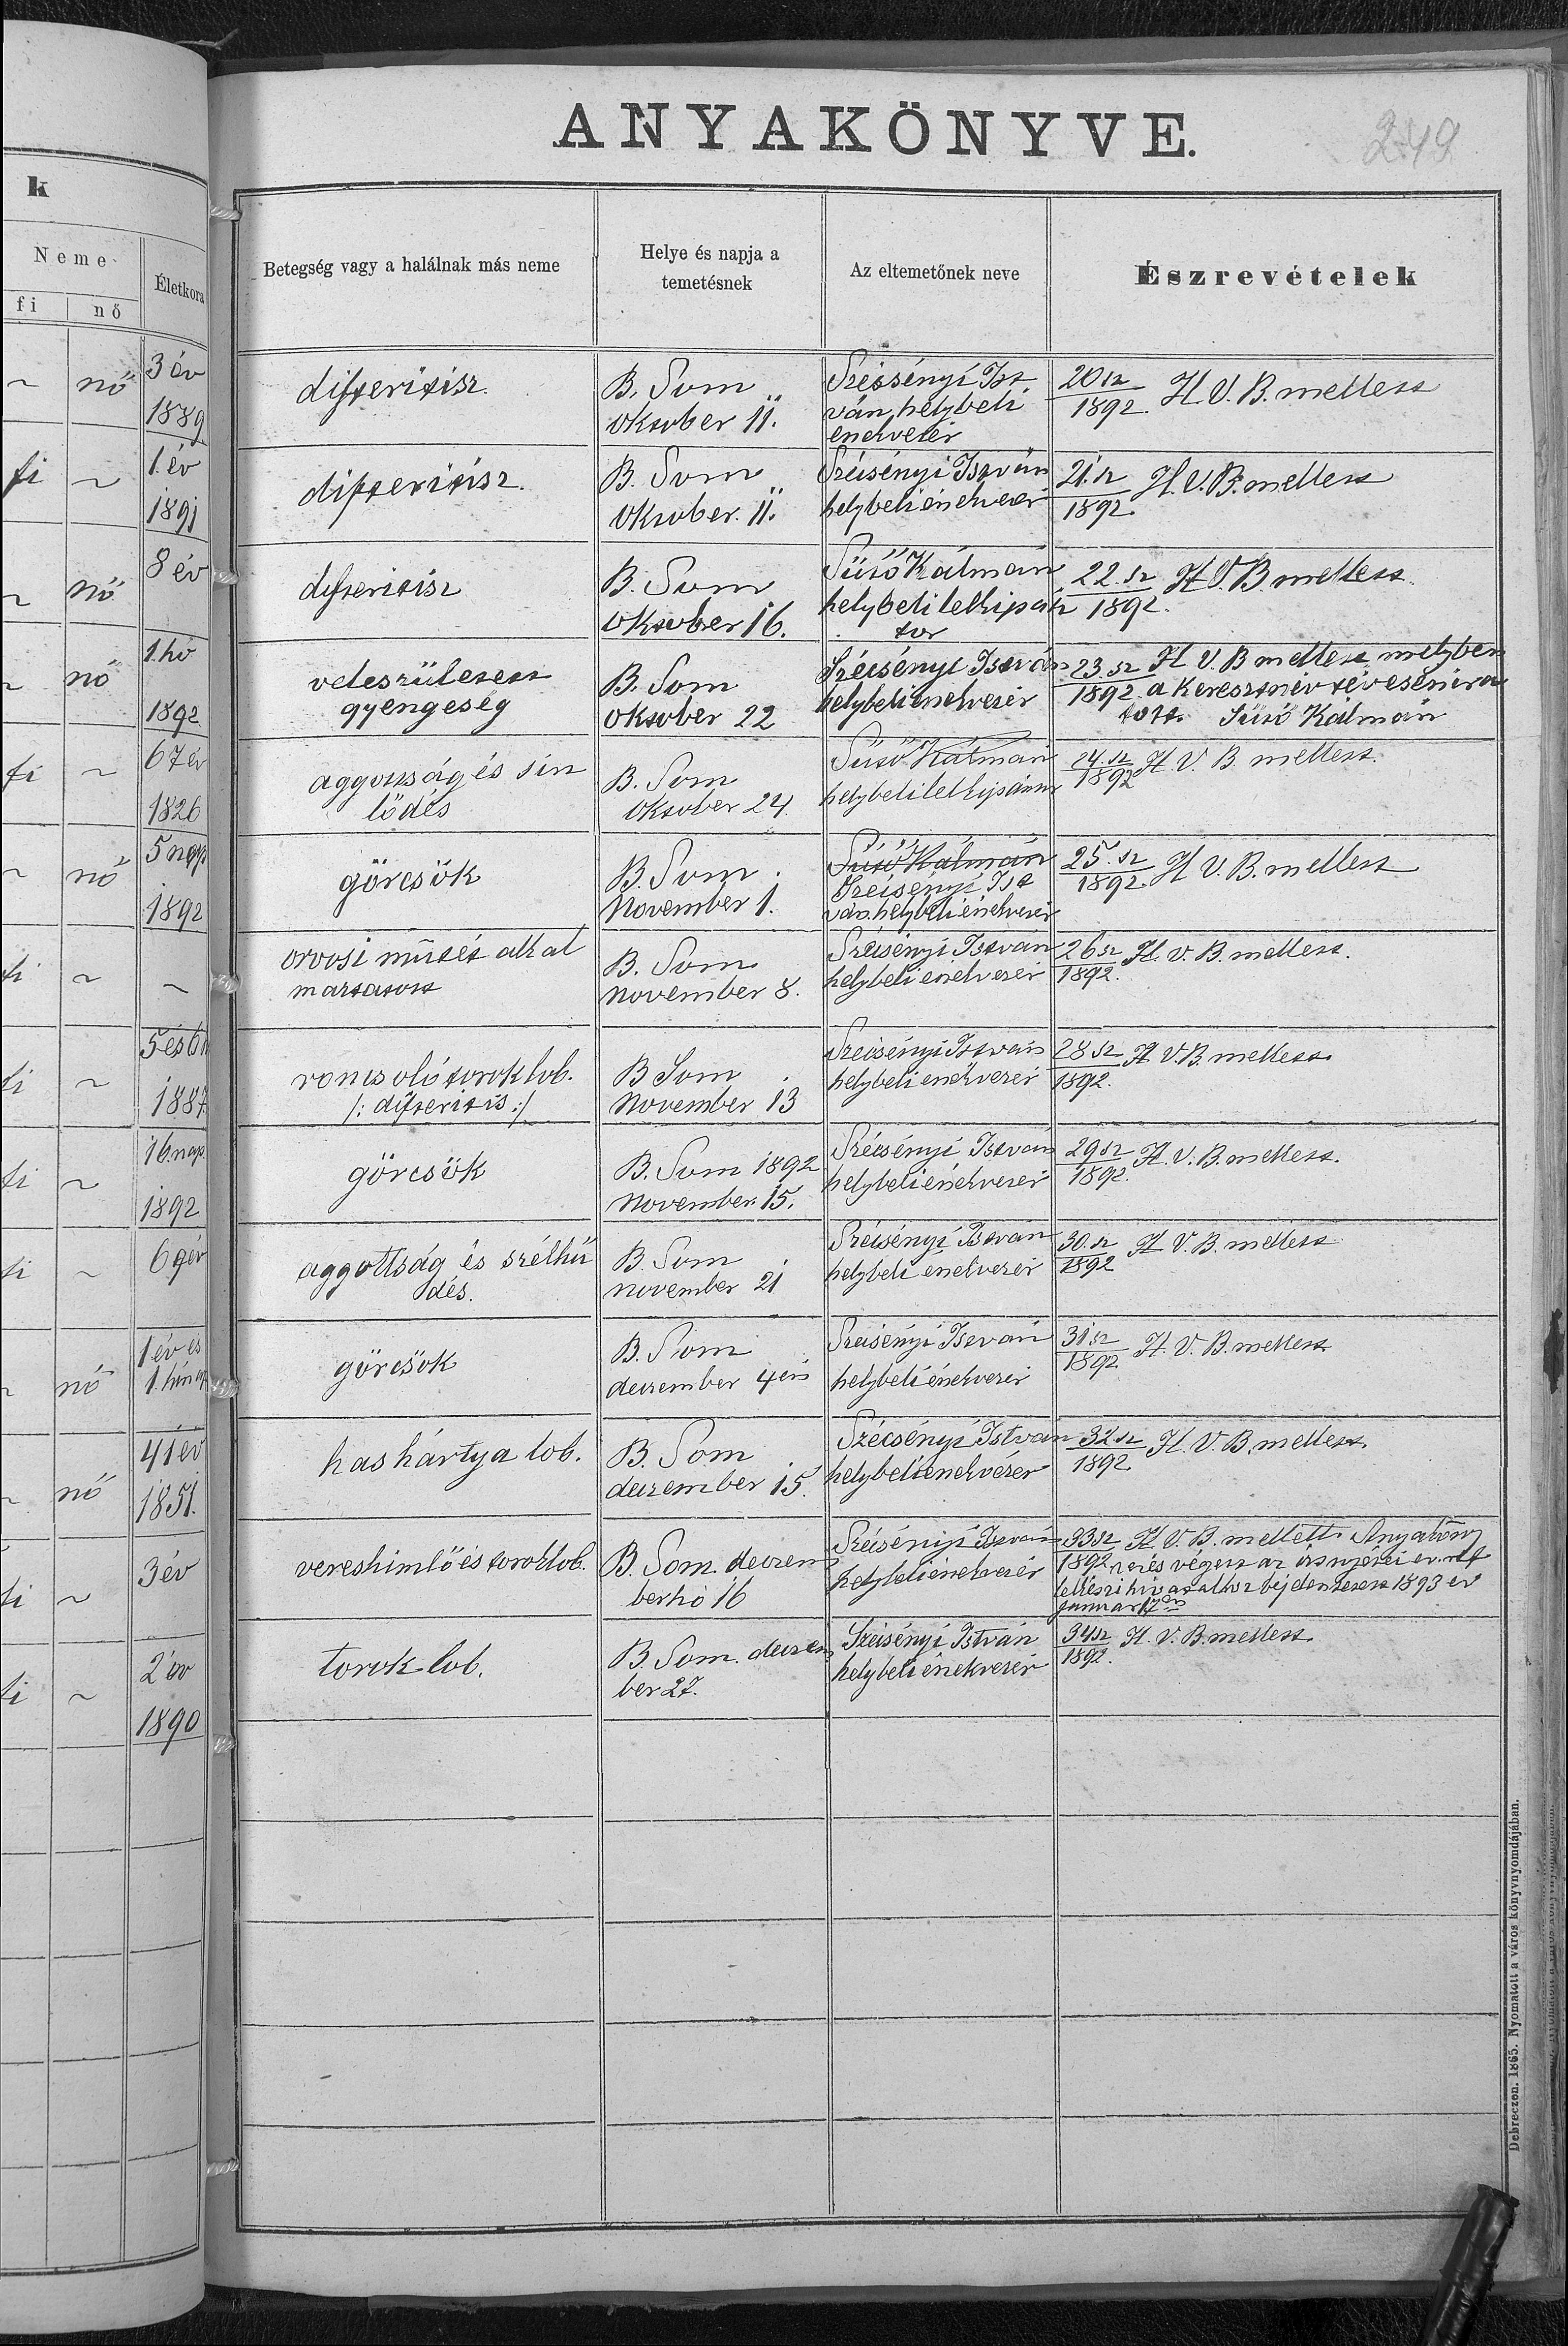 ANYAKÖNYVE.
249
k
Neme
Életkora
fi
nő
Betegség vagy a halálnak más neme
Helye és napja a
temetésnek
Az eltemetőnek neve
Észrevételek
~ nő 3 év
1889
difteritisz.
B. Som
oktober 11.
Szécsényi Ist
ván, helybeli
énekvezér
20 sz
1892. H. V. B. mellett
fi ~ 1 év
1891
difteritisz.
B. Som
oktober. 11.
Szécsényi István
helybeli énekvezér
21. sz
1892. H. V. B. mellett
~ nő 8 év
difteritisz
B. Som
oktober 16.
Süső Kálmán
helybeli lelkipász
tor
22. sz
1892. H V. B mellett.
~ nő 1. hó
1892
veleszületett
gyengeség
B. Som
oktober 22
Szécsényi István
helybeli énekvezér
23. sz H V. B mellett melyben
1892. a keresztnév tévesen ira
tott. Süső Kálmán
fi ~ 67 év
1826
aggottság és sin
lődés
B. Som
oktober 24.
Süső Kálmán
helybeli
24. sz
1892 H. V. B. mellett.
~ nő 5 nap
1892
görcsök
B. Som.
November 1.
Süső Kálmán
Szécsényi Ist
ván. helybeli énekvezér
25. sz
1892. H V. B. mellett
fi ~ ~
orvosi műtét által
B. Som
november 8.
Szécsényi István
helybeli énekvezér
26 sz
1892. H. V. B. mellett.
fi ~ 5 és 6
1887
roncsoló toroklob.
/: difteritis :/
B Som
November 13
Szécsényi István
helybeli énekvezér
28 sz
1892. H V. B. mellett
fi ~ 16. nap.
1892
görcsök
B. Som 1892
November. 15.
Szécsényi István
helybeli énekvezér
29 sz
1892. H. V. B. mellett.
fi ~ 69 év
aggottság és szélhű
dés.
B. Som
november 21
Szécsényi István
helybeli énekvezér
30. sz
1892 H V. B. mellett
~ nő 1 év es
1. hónap
görcsök
B. Som
deczember 4én
Szécsényi István
helybeli énekvezér
31. sz
1892 H. V. B. mellett
~ nő 41 év
1851.
hashártya lob.
B. Som
deczember 15.
Szécsényi István
helybeli énekvezér
32 sz
1892 H. V. B. mellett.
fi ~ 3 év
vereshimlő és toroklob.
B. Som. deczem
ber hó 16
Szécsényi István
helybeli énekvezér
33 sz H V. B. mellett. Anyakönyv
1892. végett az ev. ref
lelkészi hivatalhoz bejelentetett 1893 év
január 17én
fi ~ 2 év
1890
torok lob.
B. Som. deczem
ber 27.
Szécsényi István
helybeli énekvezér
34 sz
1892. H. V. B. mellett
Debreczen. 1865. Nyomatott a város könyvnyomdájában.